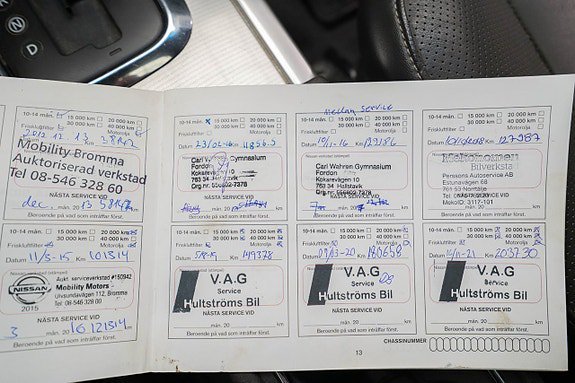 N
D
10-14 mån. 15 000 km 20 000 km
30 000 km 40 000 km
Friskluftfilter Motorolja
2012 12 13
Mobility Bromma
Auktoriserad verkstad
Tel 08-546 328 60
NÄSTA SERVICE VID
dec
Beroende på vad som inträffar först.
10-14 mån. 15 000 km 20 000 km
30 000 km 40 000 km
Friskluftfilter Motorolja
Datum km
Carl Wahren Gymnasium
Fordon
Kokarevägen 10
763 34 Hallstavik
Org.nr. 556602-7378
NÄSTA SERVICE VID
mån. 20 km
Beroende på vad som inträffar först.
Mellan Service
10-14 mån. 15 000 km 20 000 km
30 000 km 40 000 km
Friskluftfilter Motorolja
Datum 10/1-16 km
Carl Wahren Gymnasium
Fordon
Kokarevägen 10
763 34 Hallstavik
Org.nr. 556602-7378
NÄSTA SERVICE VID
mån. 20 km
Beroende på vad som inträffar först.
10-14 mån. 15 000 km 20 000 km
30 000 km 40 000 km
Friskluftfilter Motorolja
Datum km 127987
Mekonomen
Bilverksta
Perssons Autoservice AB
Estunavägen 68
761 50 Norrtälje
MekoID: 3117-101
NÄSTA SERVICE VID
mån. 20 km
Beroende på vad som inträffar först.
10-14 mån. 15 000 km 20 000 km
30 000 km 40 000 km
Friskluftfilter Motorolja
11/3-15 km 101314
Aukt. serviceverkstad #150942
NISSAN
Mobility Motors
Ulvsundavägen 112, Bromma
Tel 08-546 328 60
2015
NÄSTA SERVICE VID
3 mån. 20 16 121314 km
Beroende på vad som inträffar först.
10-14 mån. 15 000 km 20 000 km
30 000 km 40 000 km
Friskluftfilter Motorolja
Datum km 149328
V.A.G
Service
Hultströms Bil
NÄSTA SERVICE VID
mån. 20 km
Beroende på vad som inträffar först.
10-14 mån. 15 000 km 20 000 km
30 000 km 40 000 km
Friskluftfilter Motorolja
Datum 09/03-20 km 180658
V.A.G
Service
Hultströms Bil
NÄSTA SERVICE VID
mån. 20 km
Beroende på vad som inträffar först.
10-14 mån. 15 000 km 20 000 km
30 000 km 40 000 km
Friskluftfilter Motorolja
Datum km 205730
V.A.G
Service
Hultströms Bil
NÄSTA SERVICE VID
mån. 20 km
Beroende på vad som inträffar först.
13
CHASSINUMMER